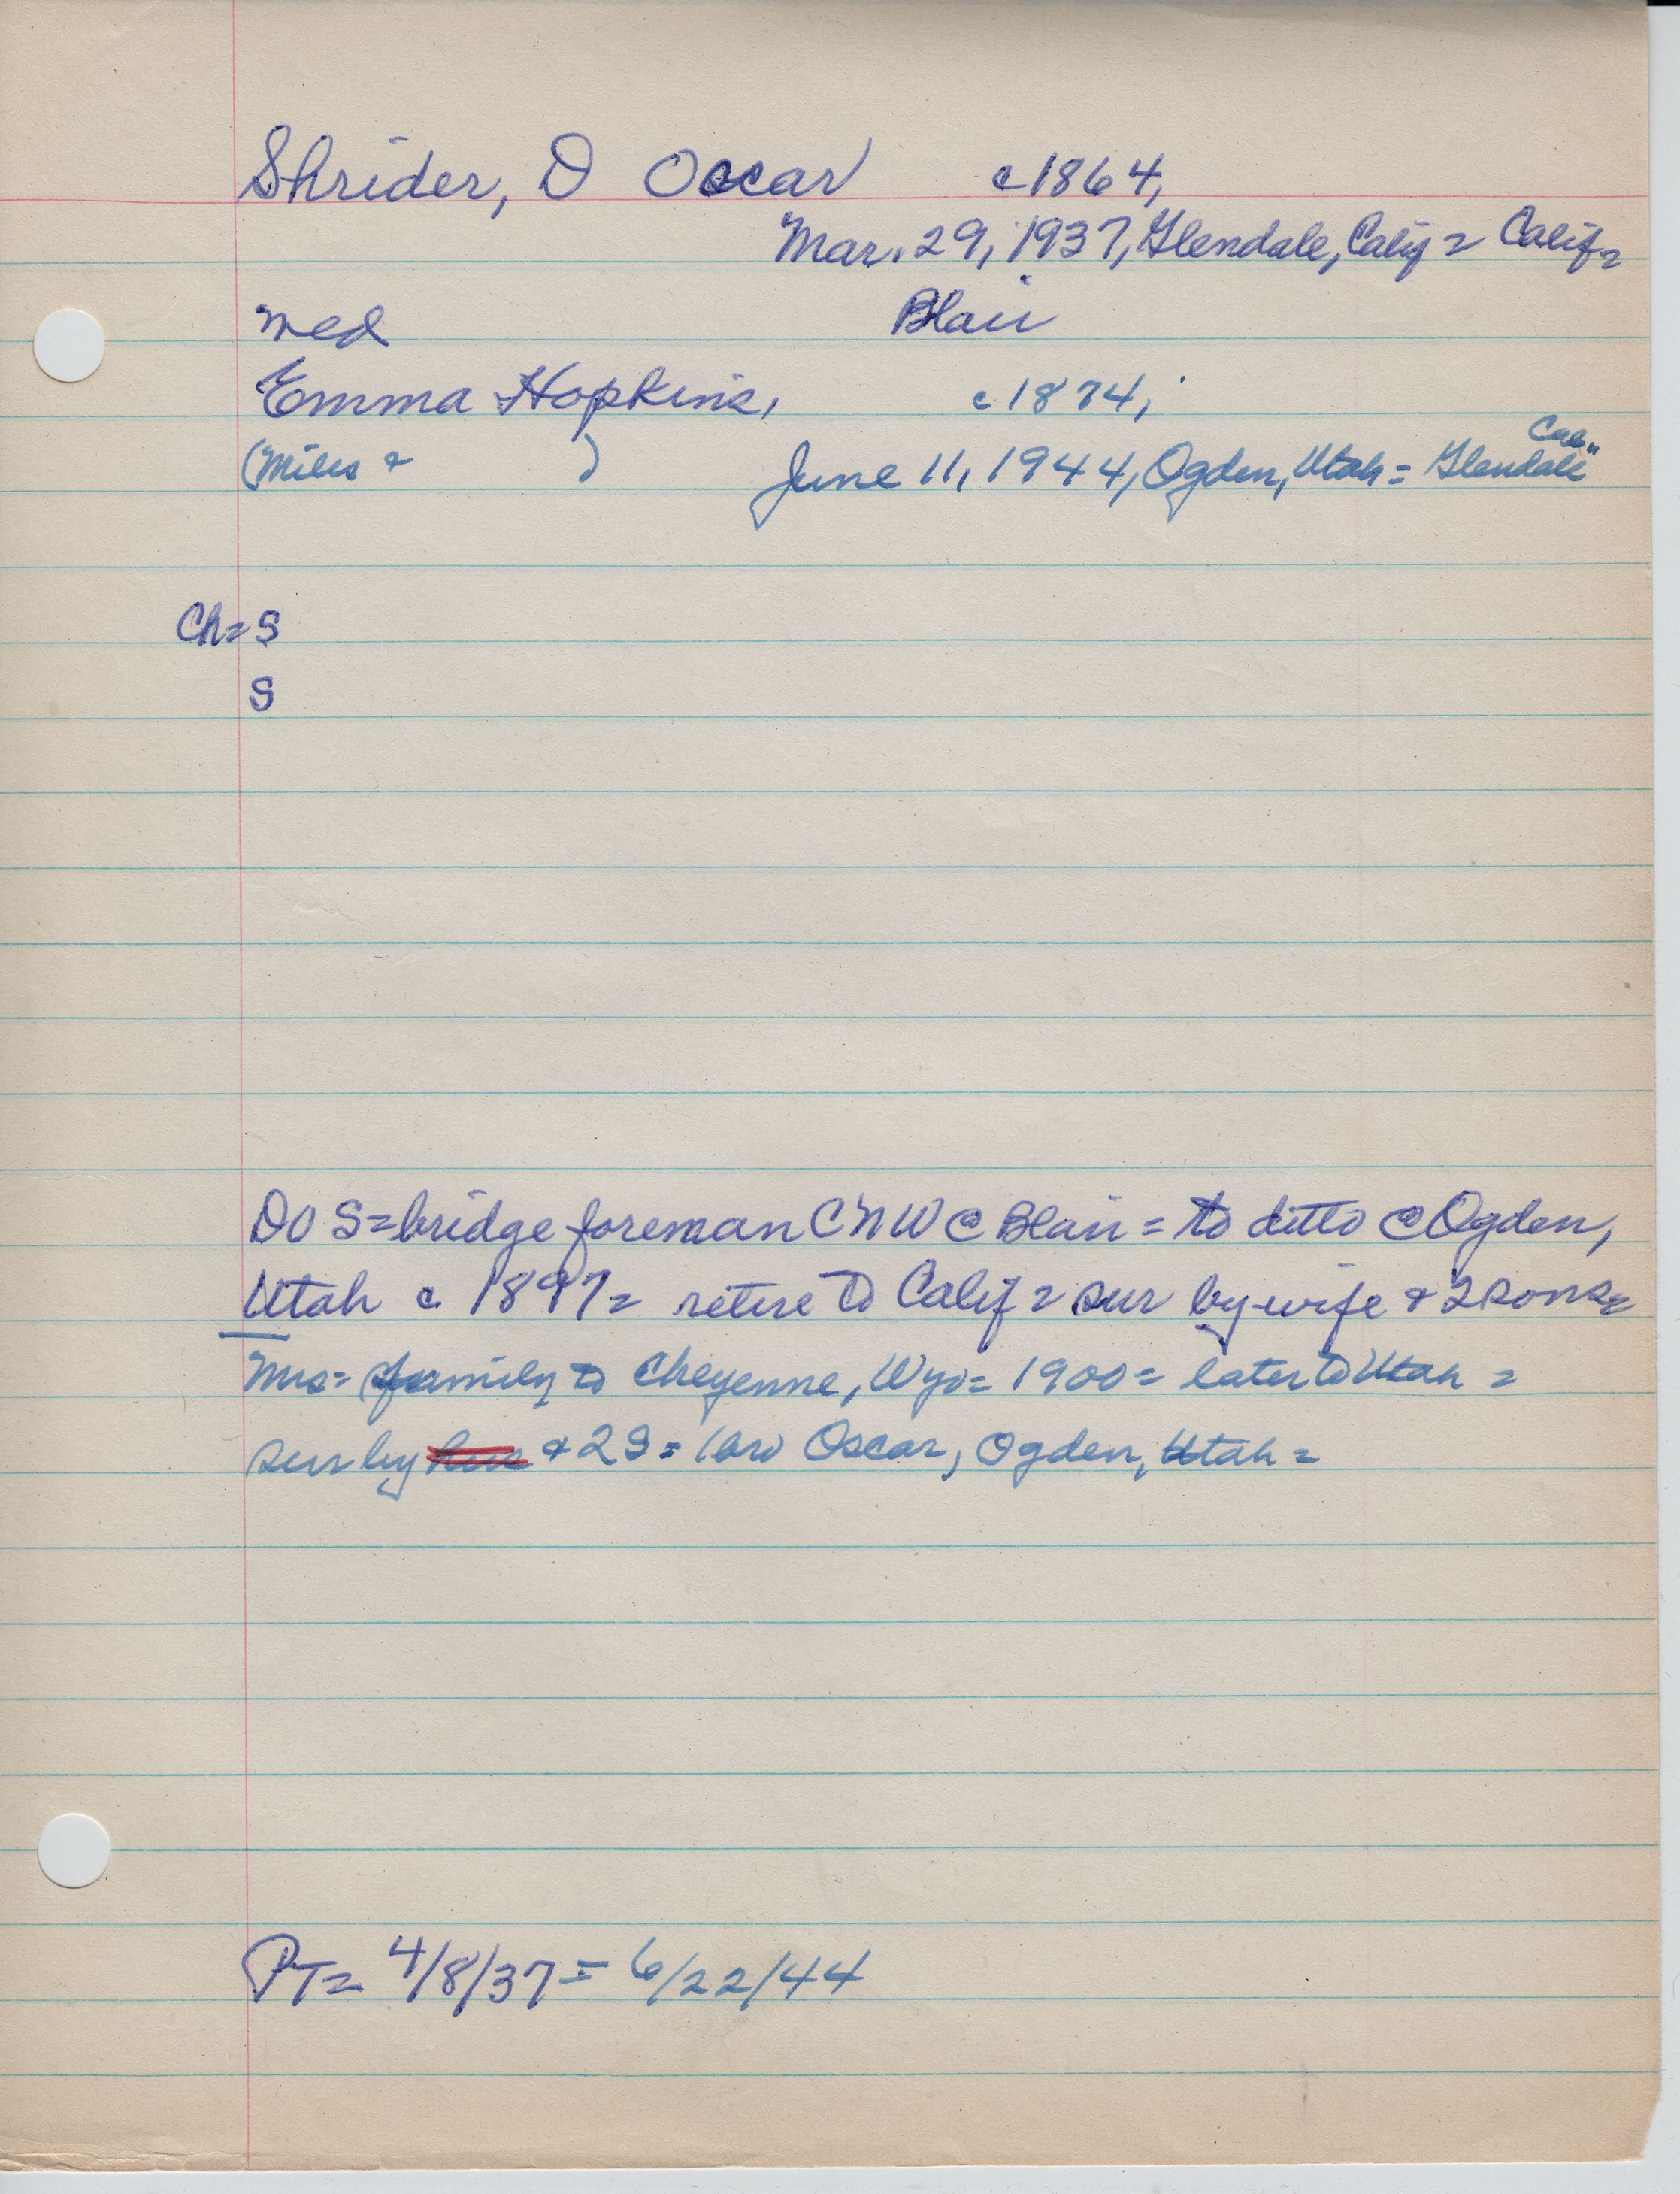 Shrider, D Oscar c 1864,
Mar. 29, 1937, Glendale, Calif = Calif =
med Blair
Emma Hopkins, c 1874,
(Miles & ) June 11, 1944, Ogden, Utah = Glendale Cal"
Ch = S
S
DO S = bridge foreman CNW @ Blair = to ditto @ Ogden,
Utah c. 1897 = retire to Calif = sur by wife & 2 sons =
Mrs = family to Cheyenne, Wyo = 1900 = later to Utah =
sur by hus & 2 S = 1 bro Oscar, Ogden, Utah =
PT = 4/8/37 = 6/22/44